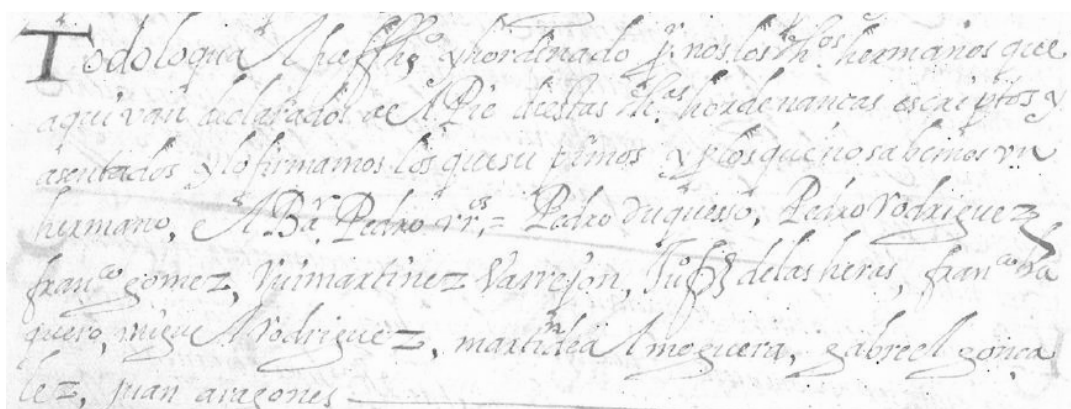 Todo lo qual ha ssº y hordenado pr nos los dhos hermanos que
aqui van declarados e al Pie destas dhas hordenanças escriptos y
asentados y lo firmamos los que supimos y por los que no sabemos un
hermano, el Br Pedro rros = Pedro duquesso, Pedro Rodriguez
franco gomez, martinez Varrejon, Juº de las heras, franco ba
quero, miguel rodriguez, martin de almoguera, gabreel gonça
lez, juan aragones